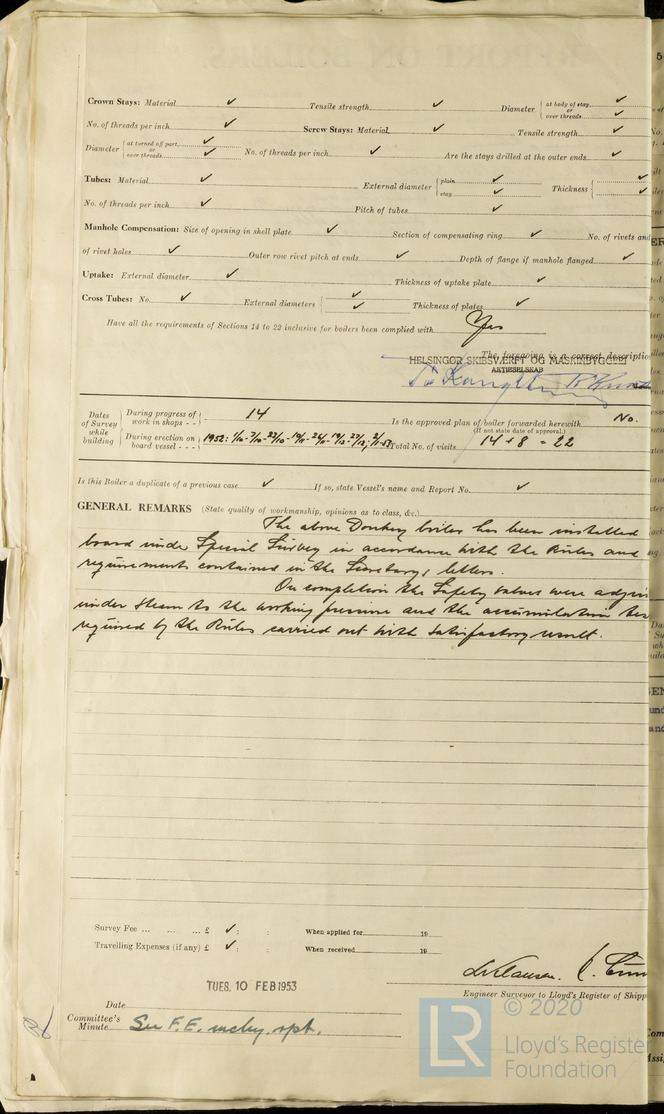 Crown Stays: Material ✓ Tensile strength ✓ Diameter { at body of stay ✓ or over threads ✓
No. of threads per inch ✓ Screw Stays: Material ✓ Tensile strength ✓
Diameter { at turned off part, ✓ or over threads ✓ No. of threads per inch ✓ Are the stays drilled at the outer ends ✓
Tubes: Material ✓ External diameter { plain ✓ stay ✓ Thickness { ✓ ✓
No. of threads per inch ✓ Pitch of tubes ✓
Manhole Compensation: Size of opening in shell plate ✓ Section of compensating ring ✓ No. of rivets and
of rivet holes ✓ Outer row rivet pitch at ends ✓ Depth of flange if manhole flanged ✓
Uptake: External diameter ✓ Thickness of uptake plate ✓
Cross Tubes: No. ✓ External diameters { ✓ ✓ Thickness of plates ✓
Have all the requirements of Sections 14 to 22 inclusive for boilers been complied with Yes
The foregoing is a correct descriptio
HELSINGØR SKIBSVÆRFT OG MASKINBYGGERI
AKTIESELSKAB
Dates of Survey while building { During progress of work in shops - - 14
Is the approved plan of boiler forwarded herewith No.
(If not state date of approval.)
During erection on board vessel - - - 1952:
Total No. of visits 14 + 8 = 22
Is this Boiler a duplicate of a previous case ✓ If so, state Vessel's name and Report No. ✓
GENERAL REMARKS (State quality of workmanship, opinions as to class, &c.)
The above Donkey boiler has been installed
board under Special Survey in accordance with the Rules and
requirements contained in the Secretary's letters.
On completion the Safety valves were adjus
under steam to the working pressure and the accumulation tes
required by the Rules carried out with satisfactory result.
Survey Fee ... ... ... £ ✓ : : When applied for 19
Travelling Expenses (if any) £ ✓ : : When received 19
TUES. 10 FEB 1953
Engineer Surveyor to Lloyd's Register of Shipp
Date
Committee's Minute See F.E. mchy. rpt.
© 2020
LR
Lloyd's Register
Foundation